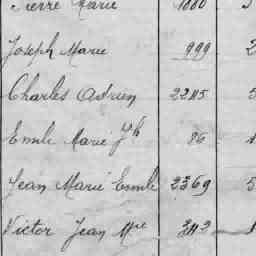 Pierre Marie 1880
Joseph Marie 999 2
Charles Adrien 2245 5
Emile Marie Jh 86 1
Jean Marie Emile 2369 5
Victor Jean Mie 342 1